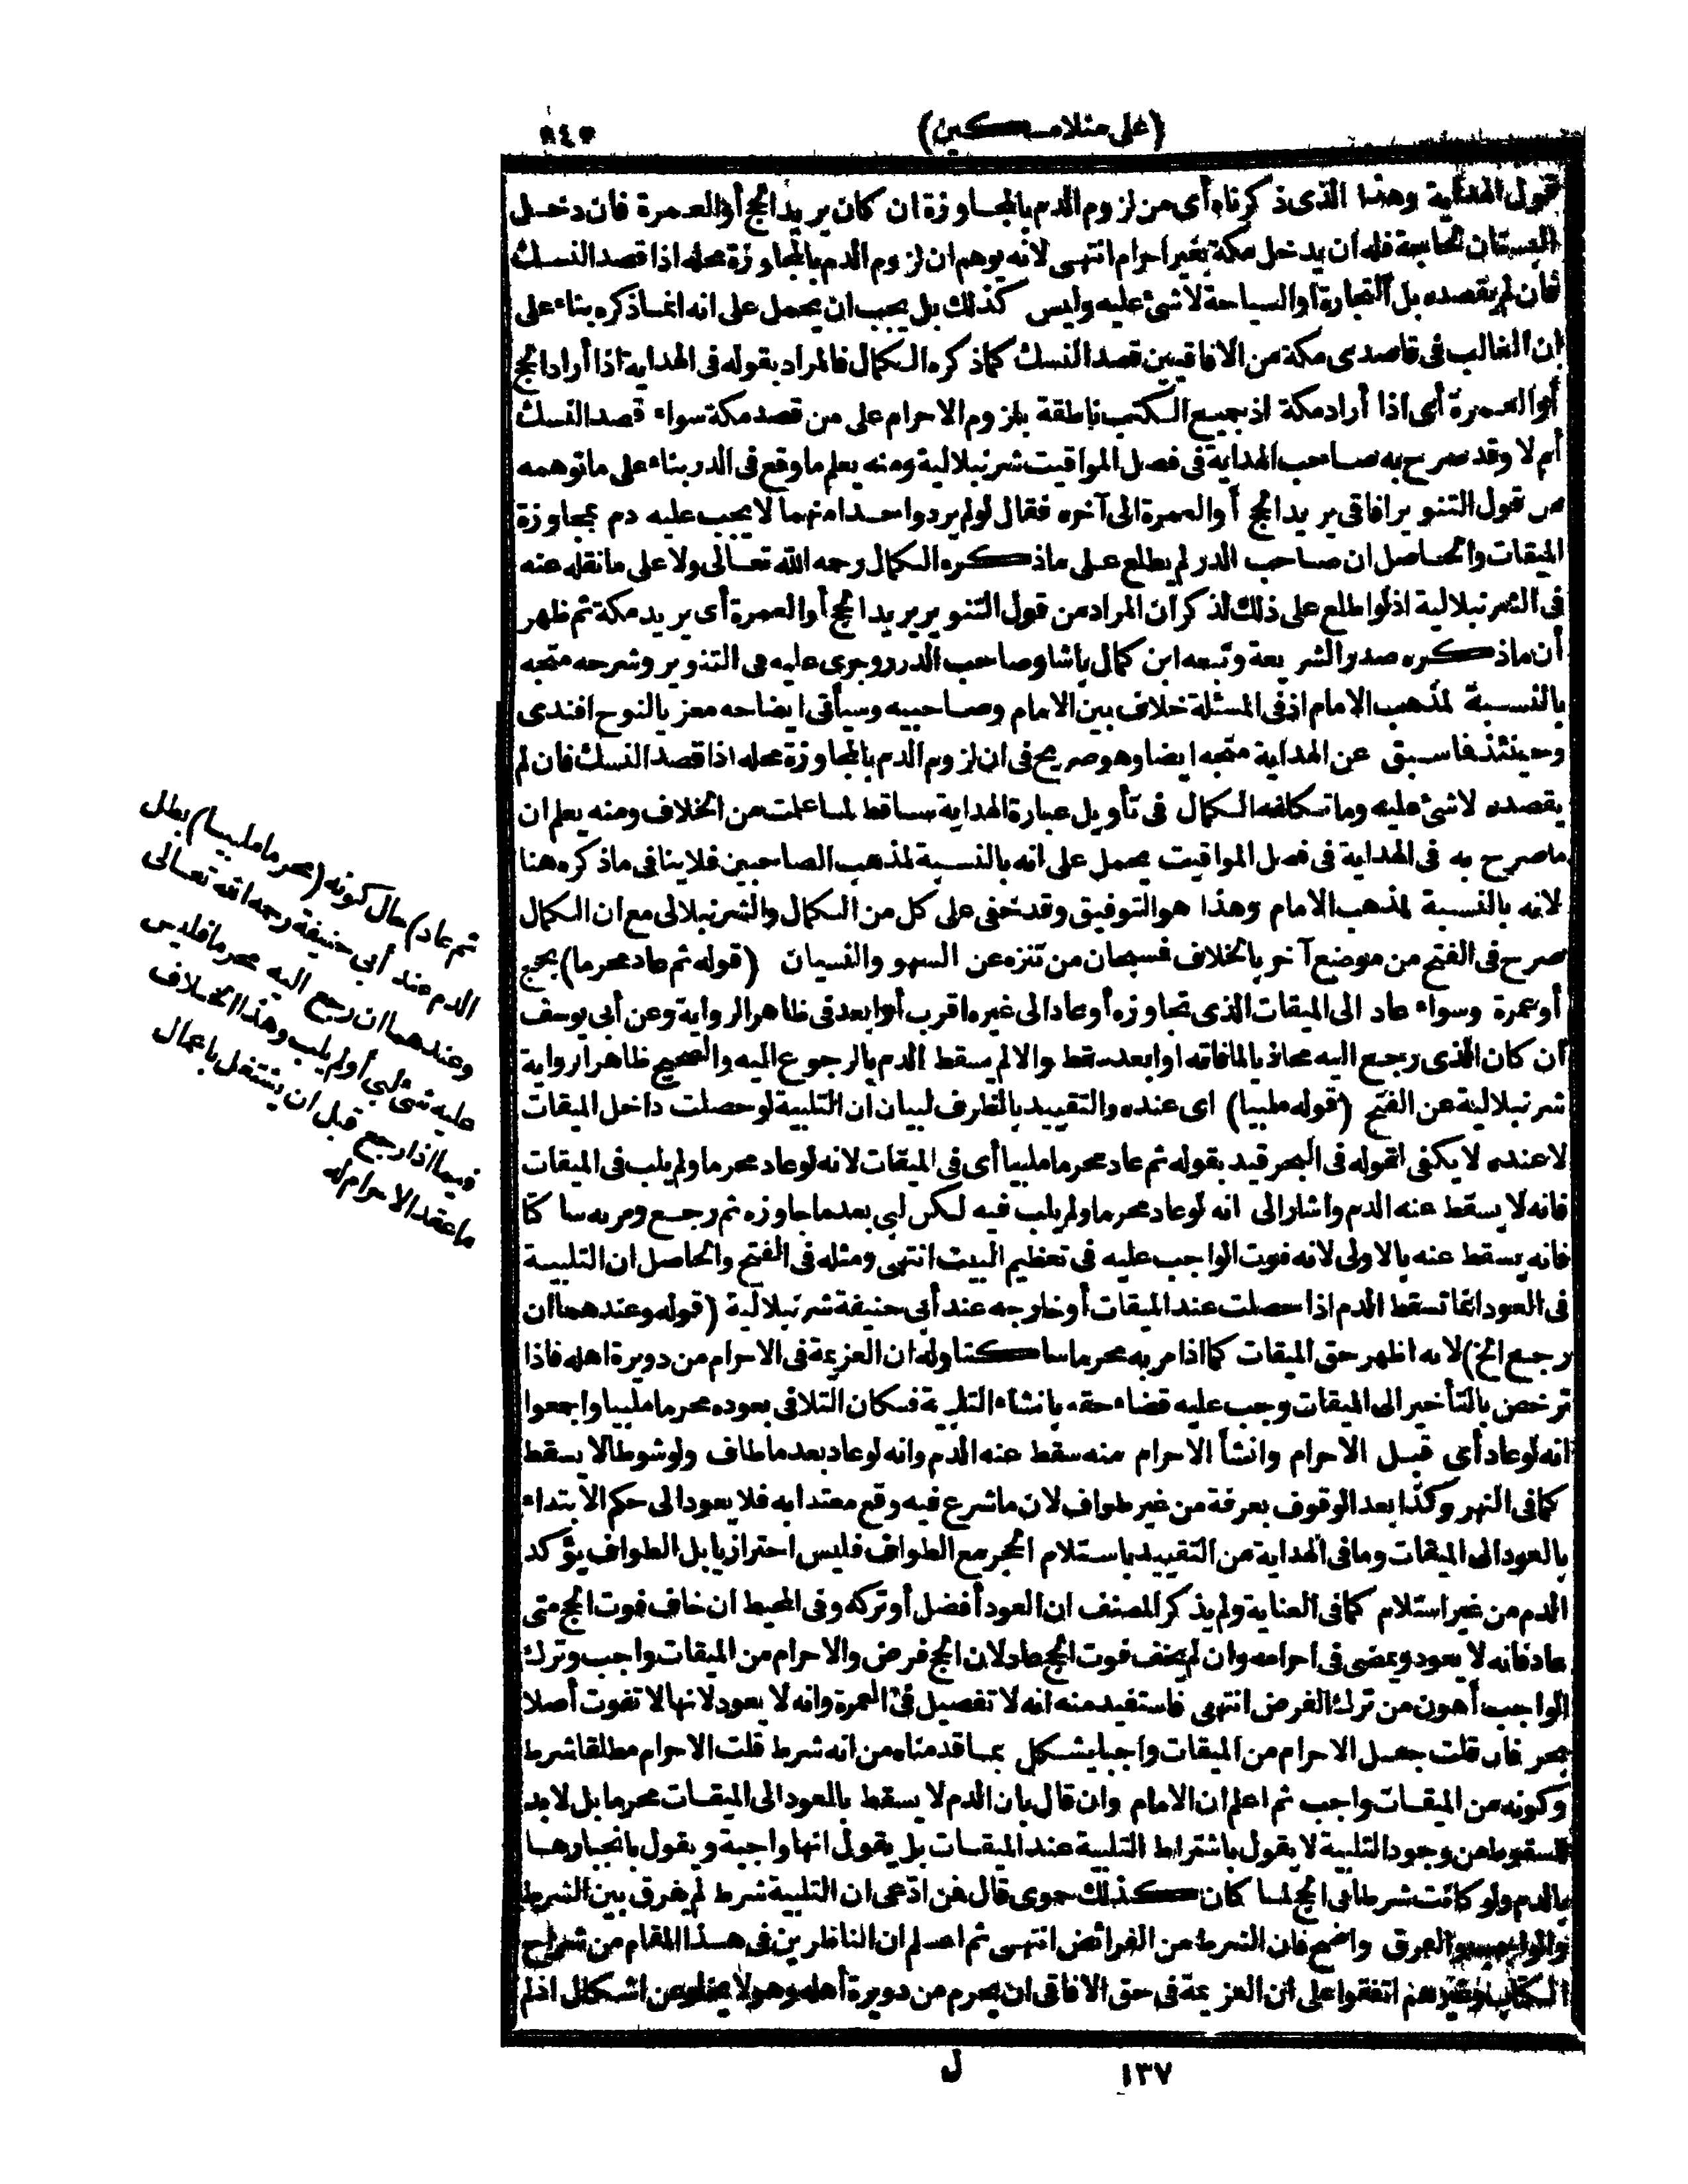 (على منلا مسكين)
٥٤٥
قول الهداية وهذا الذى ذكرناه أى من لزوم الدم بالمجاوزة ان كان يريد الحج أو العمرة فان دخل
البستان لحاجة فله أن يدخل مكة بغير احرام انتهى لانه يوهم ان لزوم الدم بالمجاوزة محله اذا قصد النسك
فان لم يقصده بل التجارة او السياحة لا شئ عليه وليس كذلك بل يجب ان يحمل على انه انما ذكره بناء على
ان الغالب فى قاصدى مكة من الافاقيين قصد النسك كما ذكره الكمال فالمراد بقوله فى الهداية اذا أراد الحج
أو العمرة أى اذا أراد مكة اذ جميع الكتب ناطقة بلزوم الاحرام على من قصد مكة سواء قصد النسك
أم لا وقد صرح به صاحب الهداية فى فصل المواقيت شرنبلالية ومنه يعلم ما وقع فى الدر بناء على ما توهمه
من قول التنوير افاقى يريد الحج أو العمرة الى آخره فقال لو لم يرد واحدا منهما لا يجب عليه دم بمجاوزة
الميقات والحاصل ان صاحب الدر لم يطلع على ما ذكره الكمال رحمه الله تعالى ولا على ما نقله عنه
فى الشرنبلالية اذ لو اطلع على ذلك لذكر ان المراد من قول التنوير يريد الحج أو العمرة أى يريد مكة ثم ظهر
أن ما ذكره صدر الشريعة وتبعه ابن كمال باشا وصاحب الدرر وجرى عليه فى التنوير وشرحه متجه
بالنسبة لمذهب الامام اذ فى المسئلة خلاف بين الامام وصاحبيه وسيأتى ايضاحه معزيا لنوح افندى
وحينئذ فما سبق عن الهداية متجه ايضا وهو صريح فى ان لزوم الدم بالمجاوزة محله اذا قصد النسك فان لم
يقصده لا شئ عليه وما تكلفه الكمال فى تأويل عبارة الهداية ساقط لما علمت من الخلاف ومنه يعلم ان
ما صرح به فى الهداية فى فصل المواقيت يحمل على انه بالنسبة لمذهب الصاحبين فلا ينافى ما ذكره هنا
لانه بالنسبة لمذهب الامام وهذا هو التوفيق وقد خفى على كل من الكمال والشرنبلالى مع ان الكمال
صرح فى الفتح من موضع آخر بالخلاف فسبحان من تنزه عن السهو والنسيان (قوله ثم عاد محرما) بحج
أو عمرة وسواء عاد الى الميقات الذى تجاوزه أو عاد الى غيره اقرب أو ابعد فى ظاهر الرواية وعن أبى يوسف
أن كان الذى رجع اليه محاذيا لما فاته او ابعد سقط والا لم يسقط الدم بالرجوع اليه والصحيح ظاهر الرواية
شرنبلالية عن الفتح (قوله ملبيا) اى عنده والتقييد بالظرف لبيان ان التلبية لو حصلت داخل الميقات
لا عنده لا يكفى لقوله فى البحر قيد بقوله ثم عاد محرما ملبيا أى فى الميقات لانه لو عاد محرما ولم يلب فى الميقات
فانه لا يسقط عنه الدم واشار الى انه لو عاد محرما ولم يلب فيه لكن لبى بعد ما جاوزه ثم رجع ومر به ساكتا
فانه يسقط عنه بالاولى لانه فوت الواجب عليه فى تعظيم البيت انتهى ومثله فى الفتح والحاصل ان التلبية
فى العود انما تسقط الدم اذا حصلت عند الميقات أو خارجه عند أبى حنيفة شرنبلالية (قوله وعندهما ان
رجع الخ) لانه اظهر حق الميقات كما اذا مر به محرما ساكتا وله ان العزيمة فى الاحرام من دويرة اهله فاذا
ترخص بالتأخير الى الميقات وجب عليه قضاء حقه بانشاء التلبية فكان التلافى بعوده محرما ملبيا واجمعوا
انه لو عاد أى قبل الاحرام وانشأ الاحرام منه سقط عنه الدم وانه لو عاد بعد ما طاف ولو شوطا لا يسقط
كما فى النهر وكذا بعد الوقوف بعرفة من غير طواف لان ما شرع فيه وقع معتدا به فلا يعود الى حكم الابتداء
بالعود الى الميقات وما فى الهداية من التقييد باستلام الحجر مع الطواف فليس احترازيا بل الطواف يؤكد
الدم من غير استلام كما فى العناية ولم يذكر المصنف ان العود أفضل أو تركه وفى المحيط ان خاف فوت الحج متى
عاد فانه لا يعود ويمضى فى احرامه وان لم يخف فوت الحج عاد لان الحج فرض والاحرام من الميقات واجب وترك
الواجب أهون من ترك الفرض انتهى فاستفيد منه انه لا تفصيل فى العمرة وانه لا يعود لانها لا تفوت أصلا
بحر فان قلت جعل الاحرام من الميقات واجبا يشكل بما قدمناه من انه شرط قلت الاحرام مطلقا شرط
وكونه من الميقات واجب ثم اعلم ان الامام وان قال بان الدم لا يسقط بالعود الى الميقات محرما بل لا بد
للسقوط من وجود التلبية لا يقول باشتراط التلبية عند الميقات بل يقول انها واجبة ويقول بانجبارها
بالدم ولو كانت شرطا فى الحج لما كان كذلك حموى قال فمن ادعى ان التلبية شرط لم يفرق بين الشرط
والواجب والفرق واضح فان الشرط من الفرائض انتهى ثم اعلم ان الناظرين فى هذا المقام من شراح
الكتاب وغيرهم اتفقوا على ان العزيمة فى حق الافاقى ان يحرم من دويرة أهله وهو لا يخلو عن اشكال اذ لم
ثم عاد) حال كونه (محرما ملبيا) بطل
الدم عند أبي حنيفة رحمه الله تعالى
وعندهما ان رجع اليه محرما فليس
عليه شئ لبى أو لم يلب وهذا الخلاف
فيما اذا رجع قبل ان يشتغل باعمال
ما عقد الاحرام له
١٣٧
ل